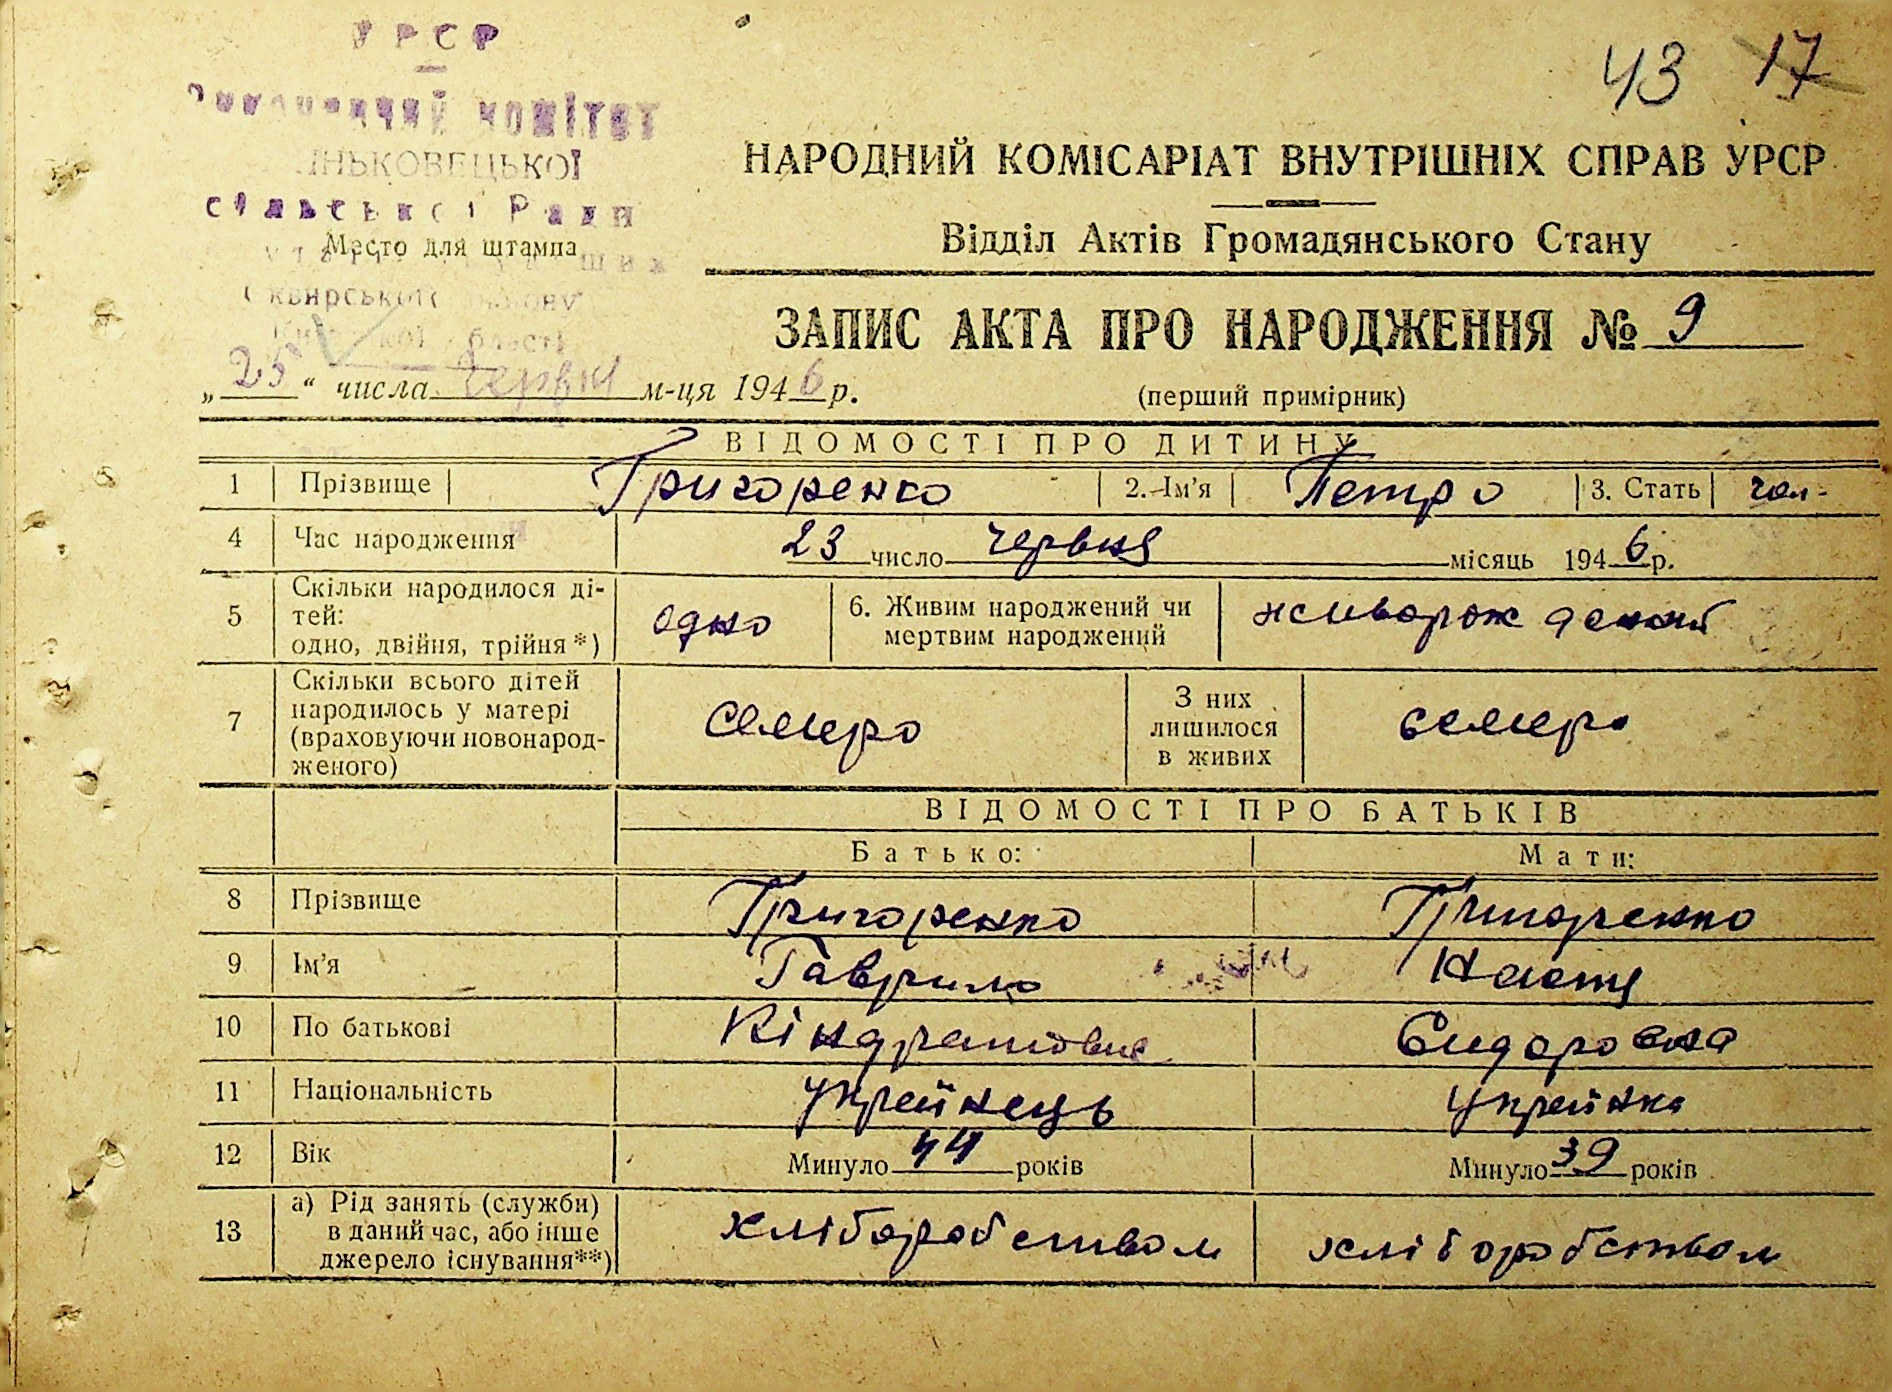 УРСР
43 17
комітет
НАРОДНИЙ КОМІСАРІАТ ВНУТРІШНІХ СПРАВ УРСР
ІНЬКОВЕЦЬКОЇ
сільської Ради
Відділ Актів Громадянського Стану
Место для штампа
ЗАПИС АКТА ПРО НАРОДЖЕННЯ № 9
„ 25 “ числа червня м-ця 1946 р.
(перший примірник)
ВІДОМОСТІ ПРО ДИТИНУ
1 Прізвище Григоренко 2. Ім'я Петро 3. Стать чол-
4 Час народження 23 число червня місяць 1946 р.
5 Скільки народилося ді-
тей:
одно, двійня, трійня *)
одно
6. Живим народжений чи
мертвим народжений
живорожденний
7 Скільки всього дітей
народилось у матері
(враховуючи новонарод-
женого)
семеро
З них
лишилося
в живих
семеро
ВІДОМОСТІ ПРО БАТЬКІВ
Батько: Мати:
8 Прізвище Григоренко Григоренко
9 Ім'я Гаврило Настя
10 По батькові Кіндратович Сидоровна
11 Національність Україець Українка
12 Вік Минуло 44 років Минуло 39 років
13 а) Рід занять (служби)
в даний час, або інше
джерело існування**)
хліборобством хліборобством